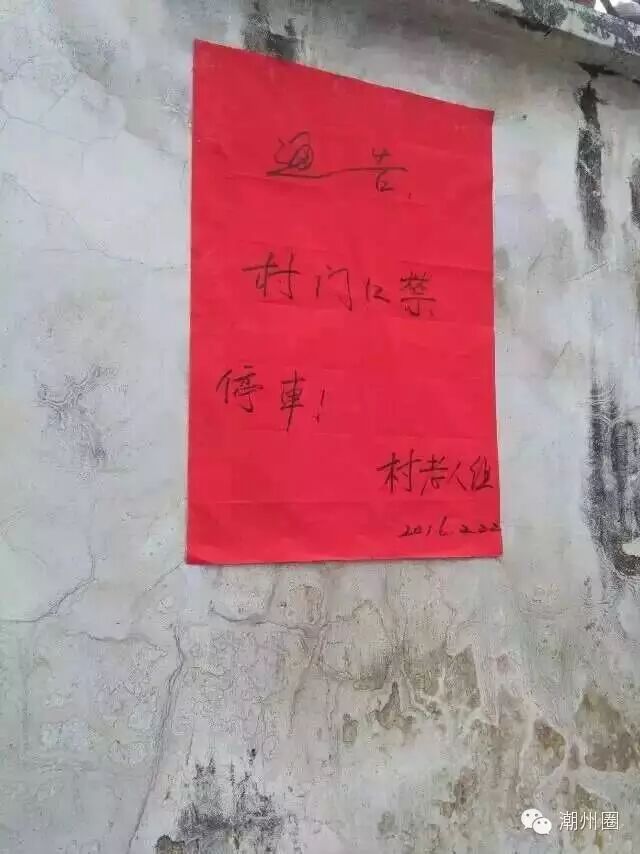 通告
村门口禁
停車!
村老人组
2016.2.22
潮州圈